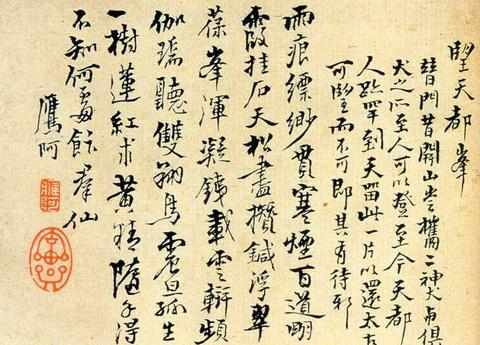 望天都峯
普門昔開山嘗攜二神犬與俱
犬之所至人可以登至今天都
人跡罕到天留此一片以還太古
可望而不可即其有待邪
雨痕縹緲貫寒煙百道明
霞挂石天松盡攢鍼浮翠
葆峯渾凝鐵載雲輧頻
伽聽雙翔鳥震旦孤生
一樹蓮紅朮黃精隨手得
不知何處飯羣仙
鷹阿